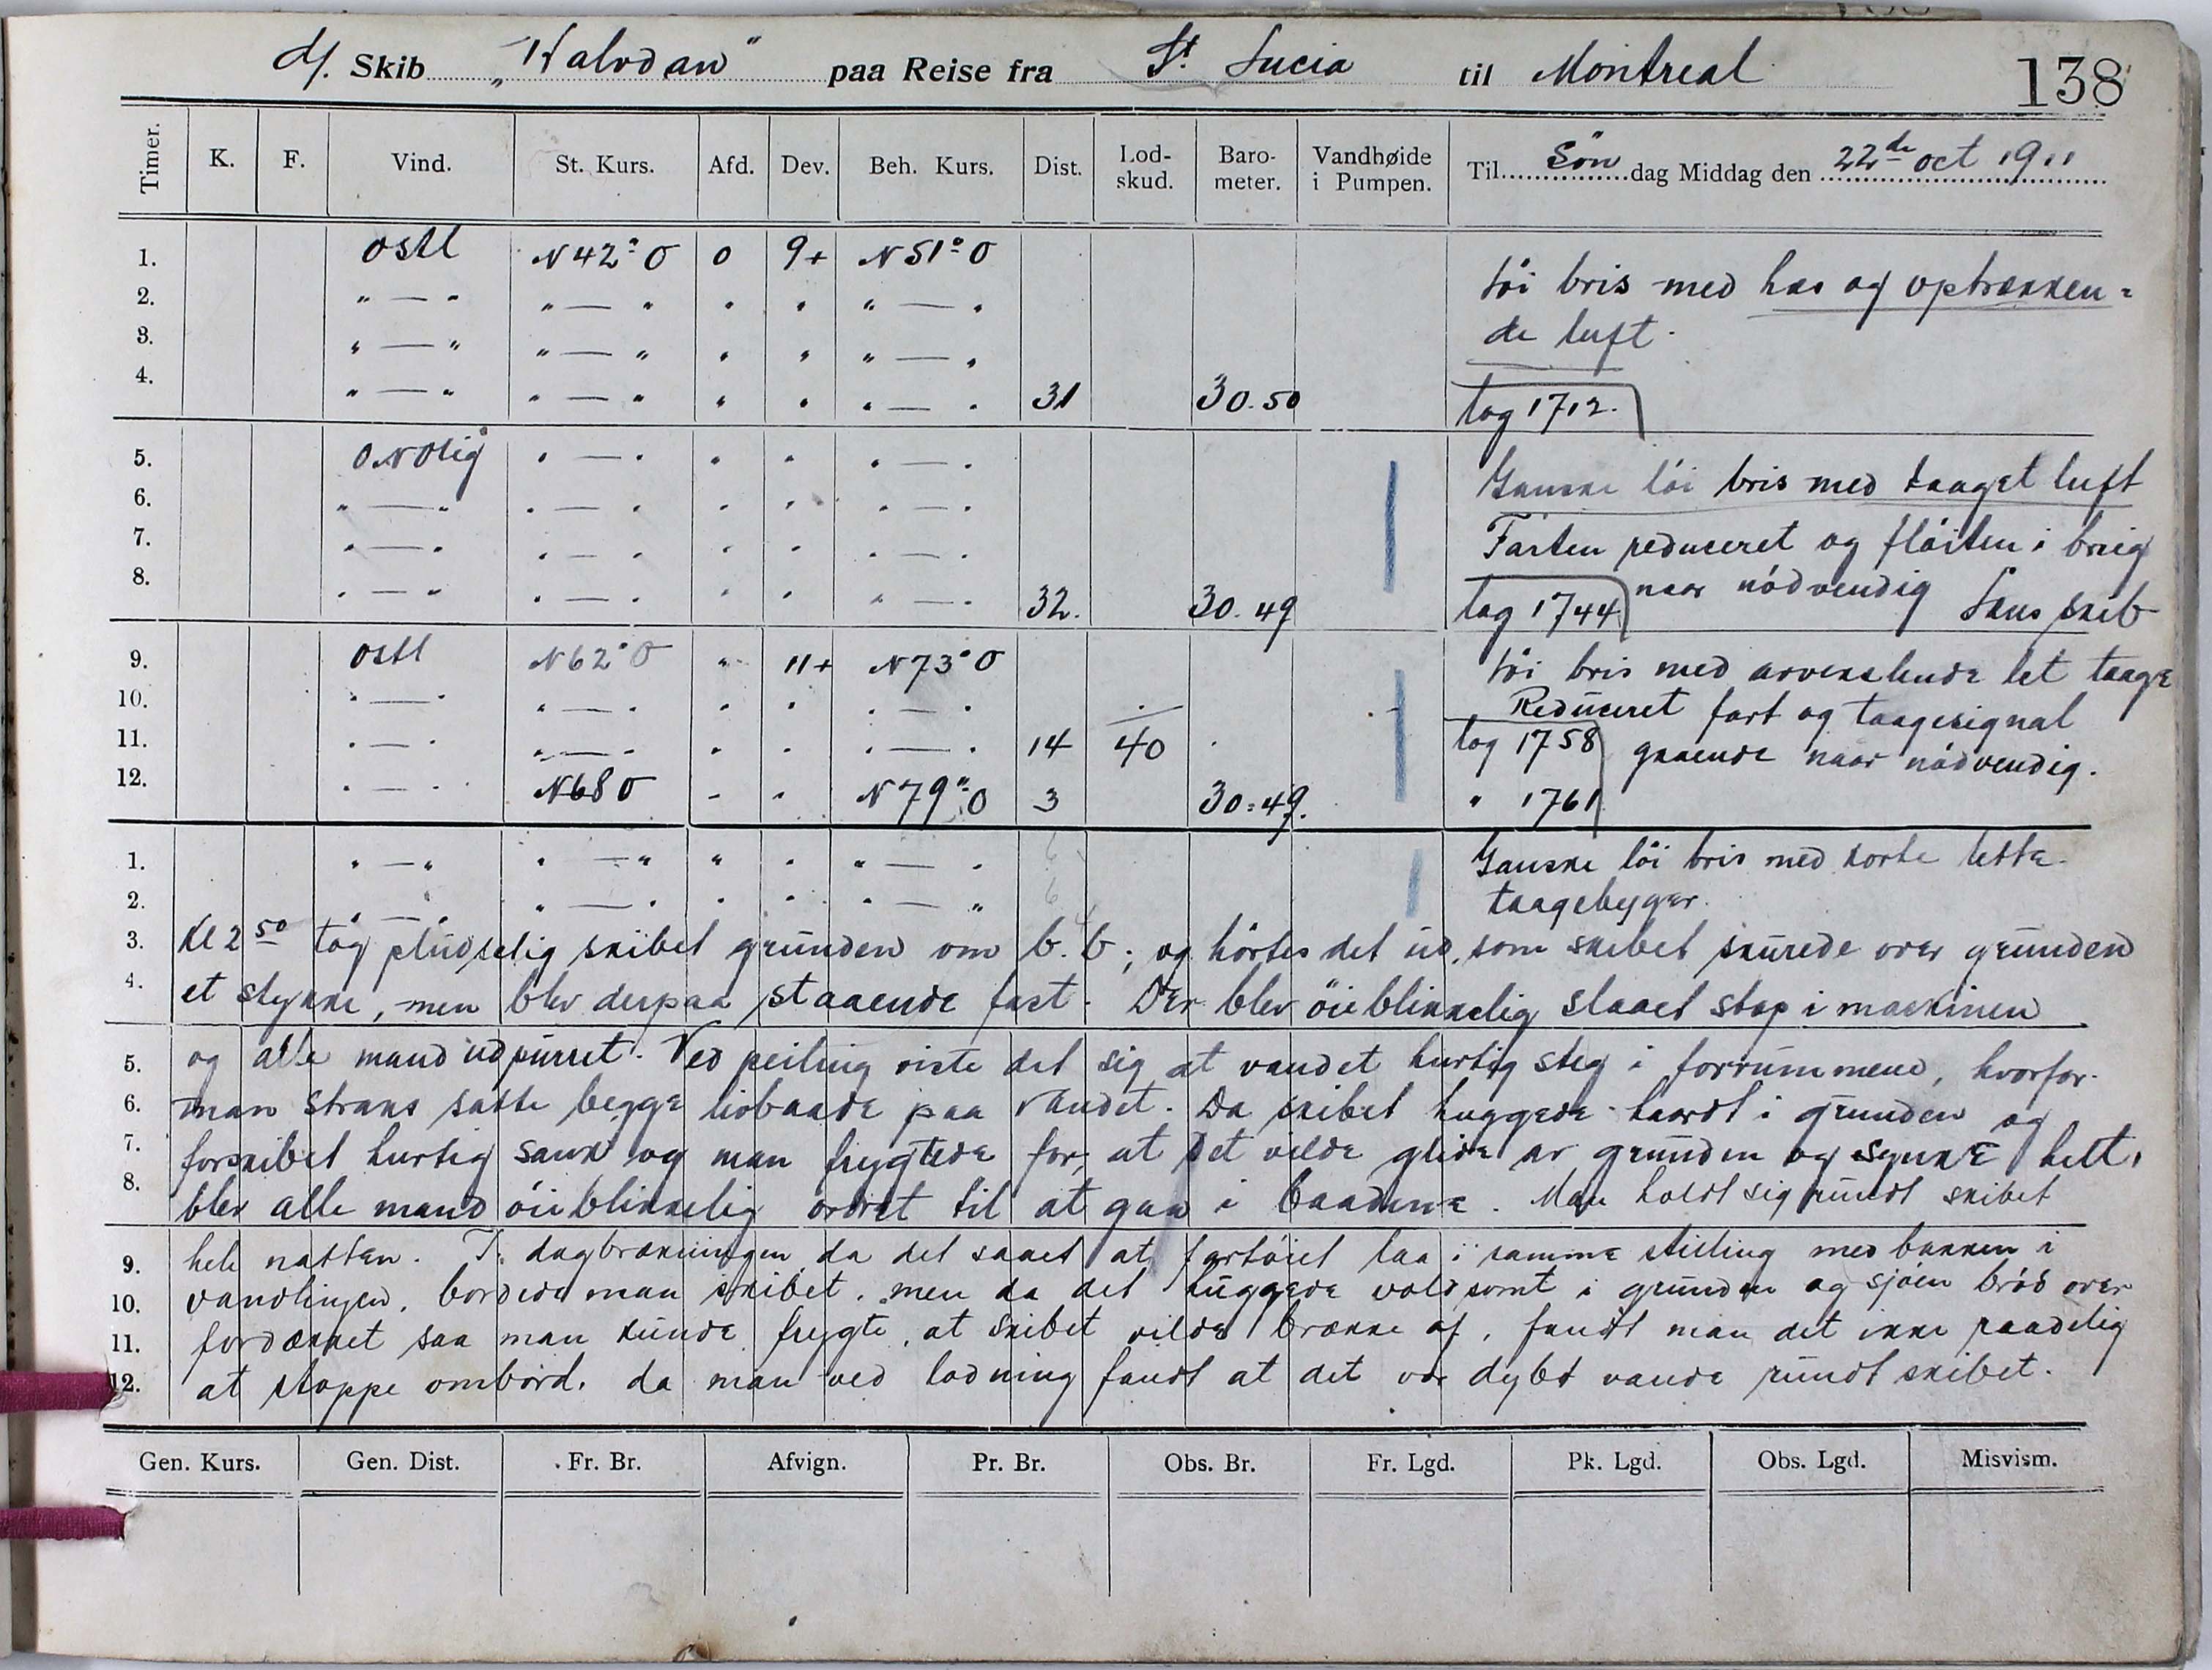 138
D/. Skib „Halvdan" paa Reise fra St Lucia til Montreal
Timer. K. F. Vind. St. Kurs. Afd. Dev. Beh. Kurs. Dist. Lod-skud. Baro-meter. Vandhøide i Pumpen. Til Søn dag Middag den 22de oct 1911
1. ostl N 42° O 0 9+ N 51° O Løi bris med has og optrækken=
2. " — " " — " " " " — "
3. " — " " — " " " " — " de luft.
4. " — " " — " " " " — " 31 30.50 Log 1712.
5. ONOlig " — " " " " — " Ganske løi bris med taaget luft
6. " — " " — " " " " — "
7. " — " " — " " " " — " Farten reduceret og fløiten i brug
8. " — " " — " " " " — " 32. 30.49 Log 1744 naar nødvendig Sans skib
9. ostl N 62° O " 11+ N 73° O Løi bris med avvekslende let taage
10. " — " " — " " " " — " Reduceret fart og taagesignal
11. " — " " — " " " " — " 14 40 Log 1758 gaaende naar nødvendig.
12. " — " N 68 O " " N 79° O 3 30=49. " 1761
1. " — " " — " " " " — " 6 Ganske løi bris med korte lette
2. " — " " — " " " " — " 6 taagebyger.
3. Kl 2 50 tog pludselig skibet grunden om b.b; og hørtes det ud, som skibet skurede over grunden
4. et stykke, men blev derpaa staaende fast. Der blev øieblikkelig slaaet stop i maskinen
5. og alle mand udpurret. Ved peiling viste det sig at vandet hurtig steg i forrummene, hvorfor
6. man straks satte begge livbaade paa vandet. Da skibet huggede haardt i grunden og
7. forskibet hurtig sank og man frygtede for, at det vilde glide av grunden og synke helt,
8. blev alle mand øieblikkelig ordret til at gaa i baadene. Man holdt sig rundt skibet
9. hele natten. I dagbrækningen, da det saaes at fartøiet laa i samme stilling med bakken i
10. vandlinjen, bordede man skibet, men da det huggede voldsomt i grunden og sjøen brød over
11. fordækket saa man kunde frygte, at skibet vilde brække af, fandt man det ikke raadelig
12. at stoppe ombord, da man ved lodning fandt at det var dybt vande rundt skibet.
Gen. Kurs. Gen. Dist. Fr. Br. Afvign. Pr. Br. Obs. Br. Fr. Lgd. Pk. Lgd. Obs. Lgd. Misvism.